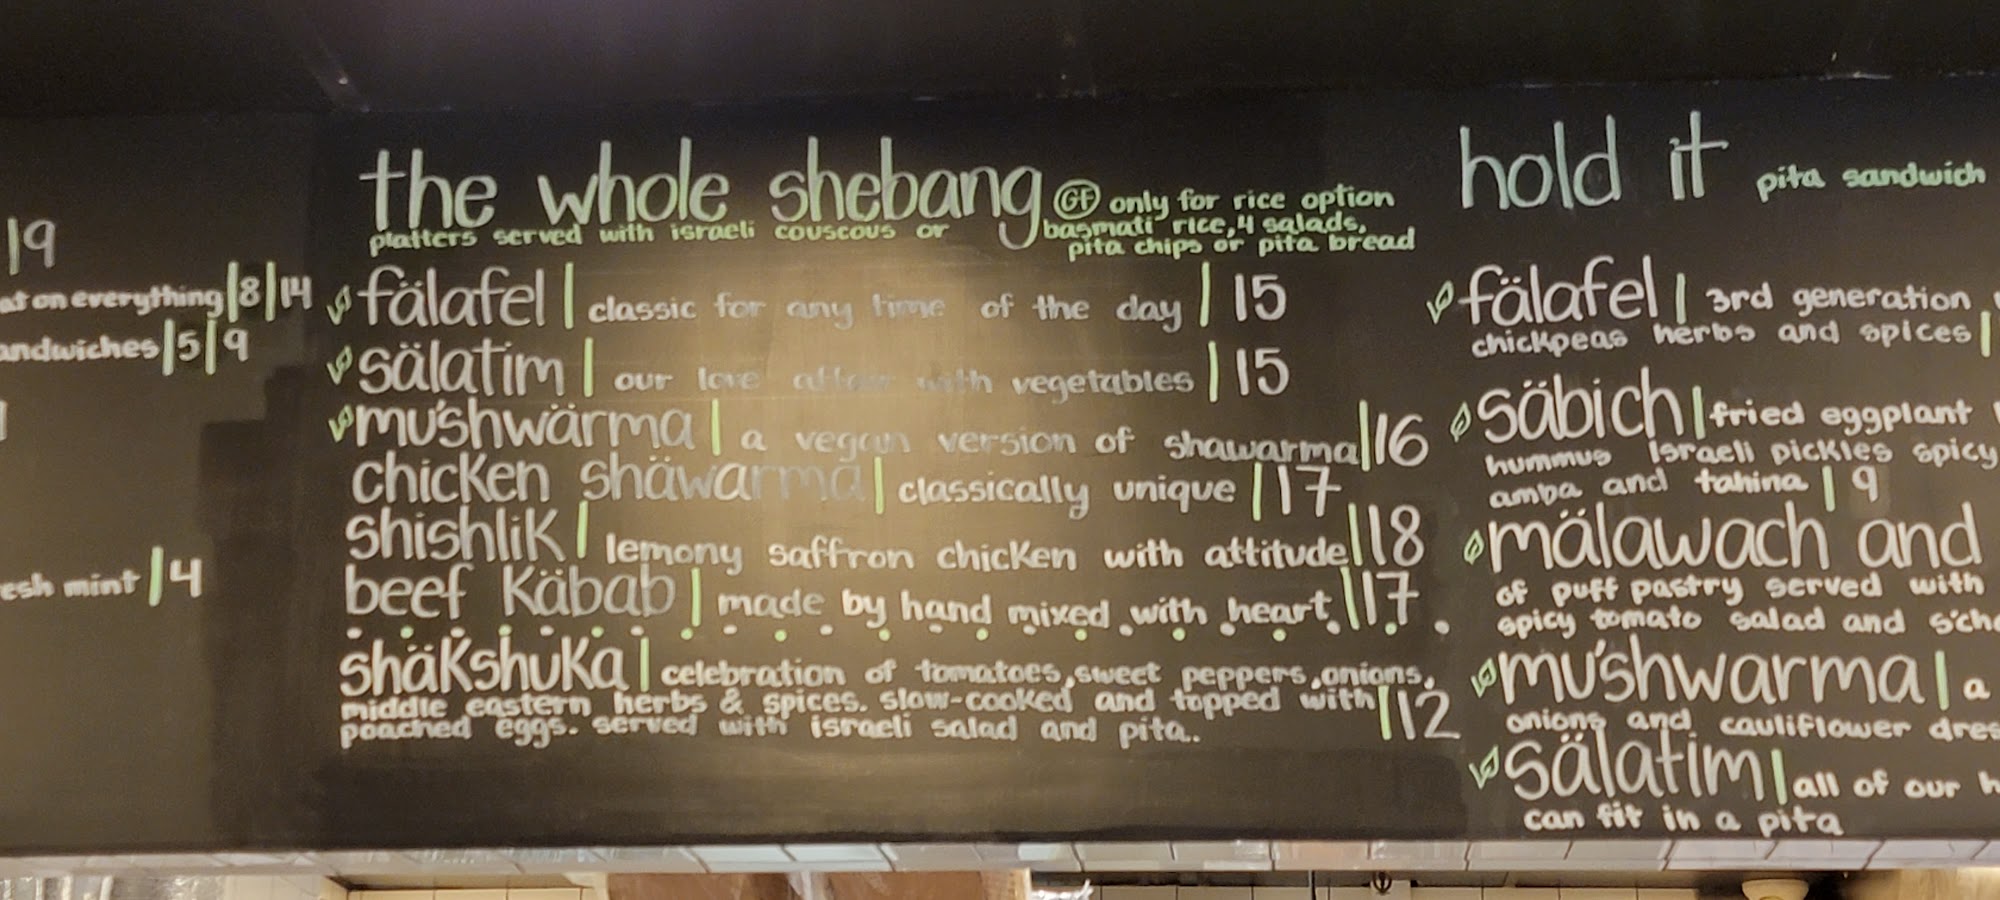 |9
at on everything|8|14
andwiches|5|9
esh mint|4
the whole shebang GF only for rice option
platters served with israeli couscous or basmati rice, 4 salads,
pita chips or pita bread
fälafel | classic for any time of the day | 15
sälatim | our love affair with vegetables | 15
mu'shwärma | a vegan version of shawarma | 16
chicken shäwarma | classically unique | 17
shishlik | lemony saffron chicken with attitude | 18
beef käbab | made by hand mixed with heart | 17
shäkshuka | celebration of tomatoes, sweet peppers, onions,
middle eastern herbs & spices. slow-cooked and topped with | 12
poached eggs. served with israeli salad and pita..
hold it pita sandwich
fälafel | 3rd generation
chickpeas herbs and spices |
säbich | fried eggplant
hummus Israeli pickles spicy
amba and tahina | 9
mälawach and
of puff pastry served with
spicy tomato salad and s'ch
mu'shwarma | a
onions and cauliflower dres
sälatim | all of our h
can fit in a pita